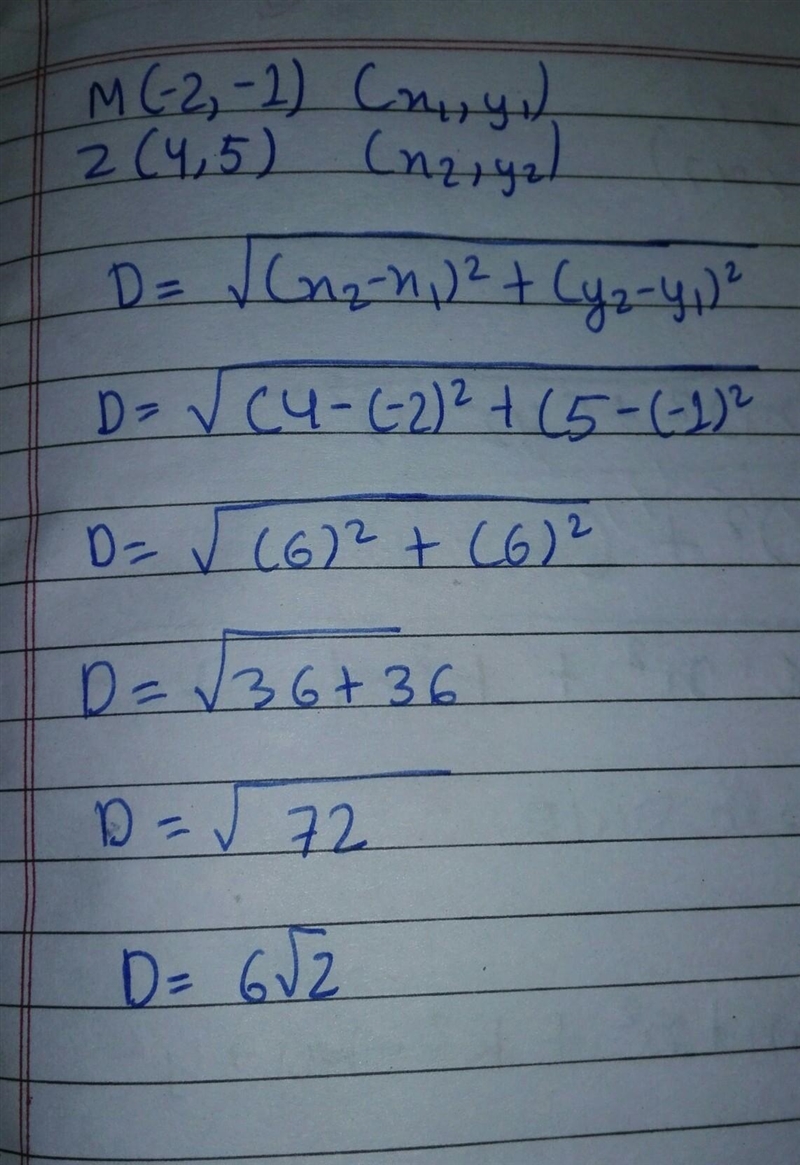 M(-2, -1) (x₁, y₁)
Z(4,5) (x₂, y₂)
D = √(x₂-x₁)² + (y₂-y₁)²
D = √(4-(-2)² + (5-(-1)²
D = √(6)² + (6)²
D = √36+36
D = √72
D = 6√2